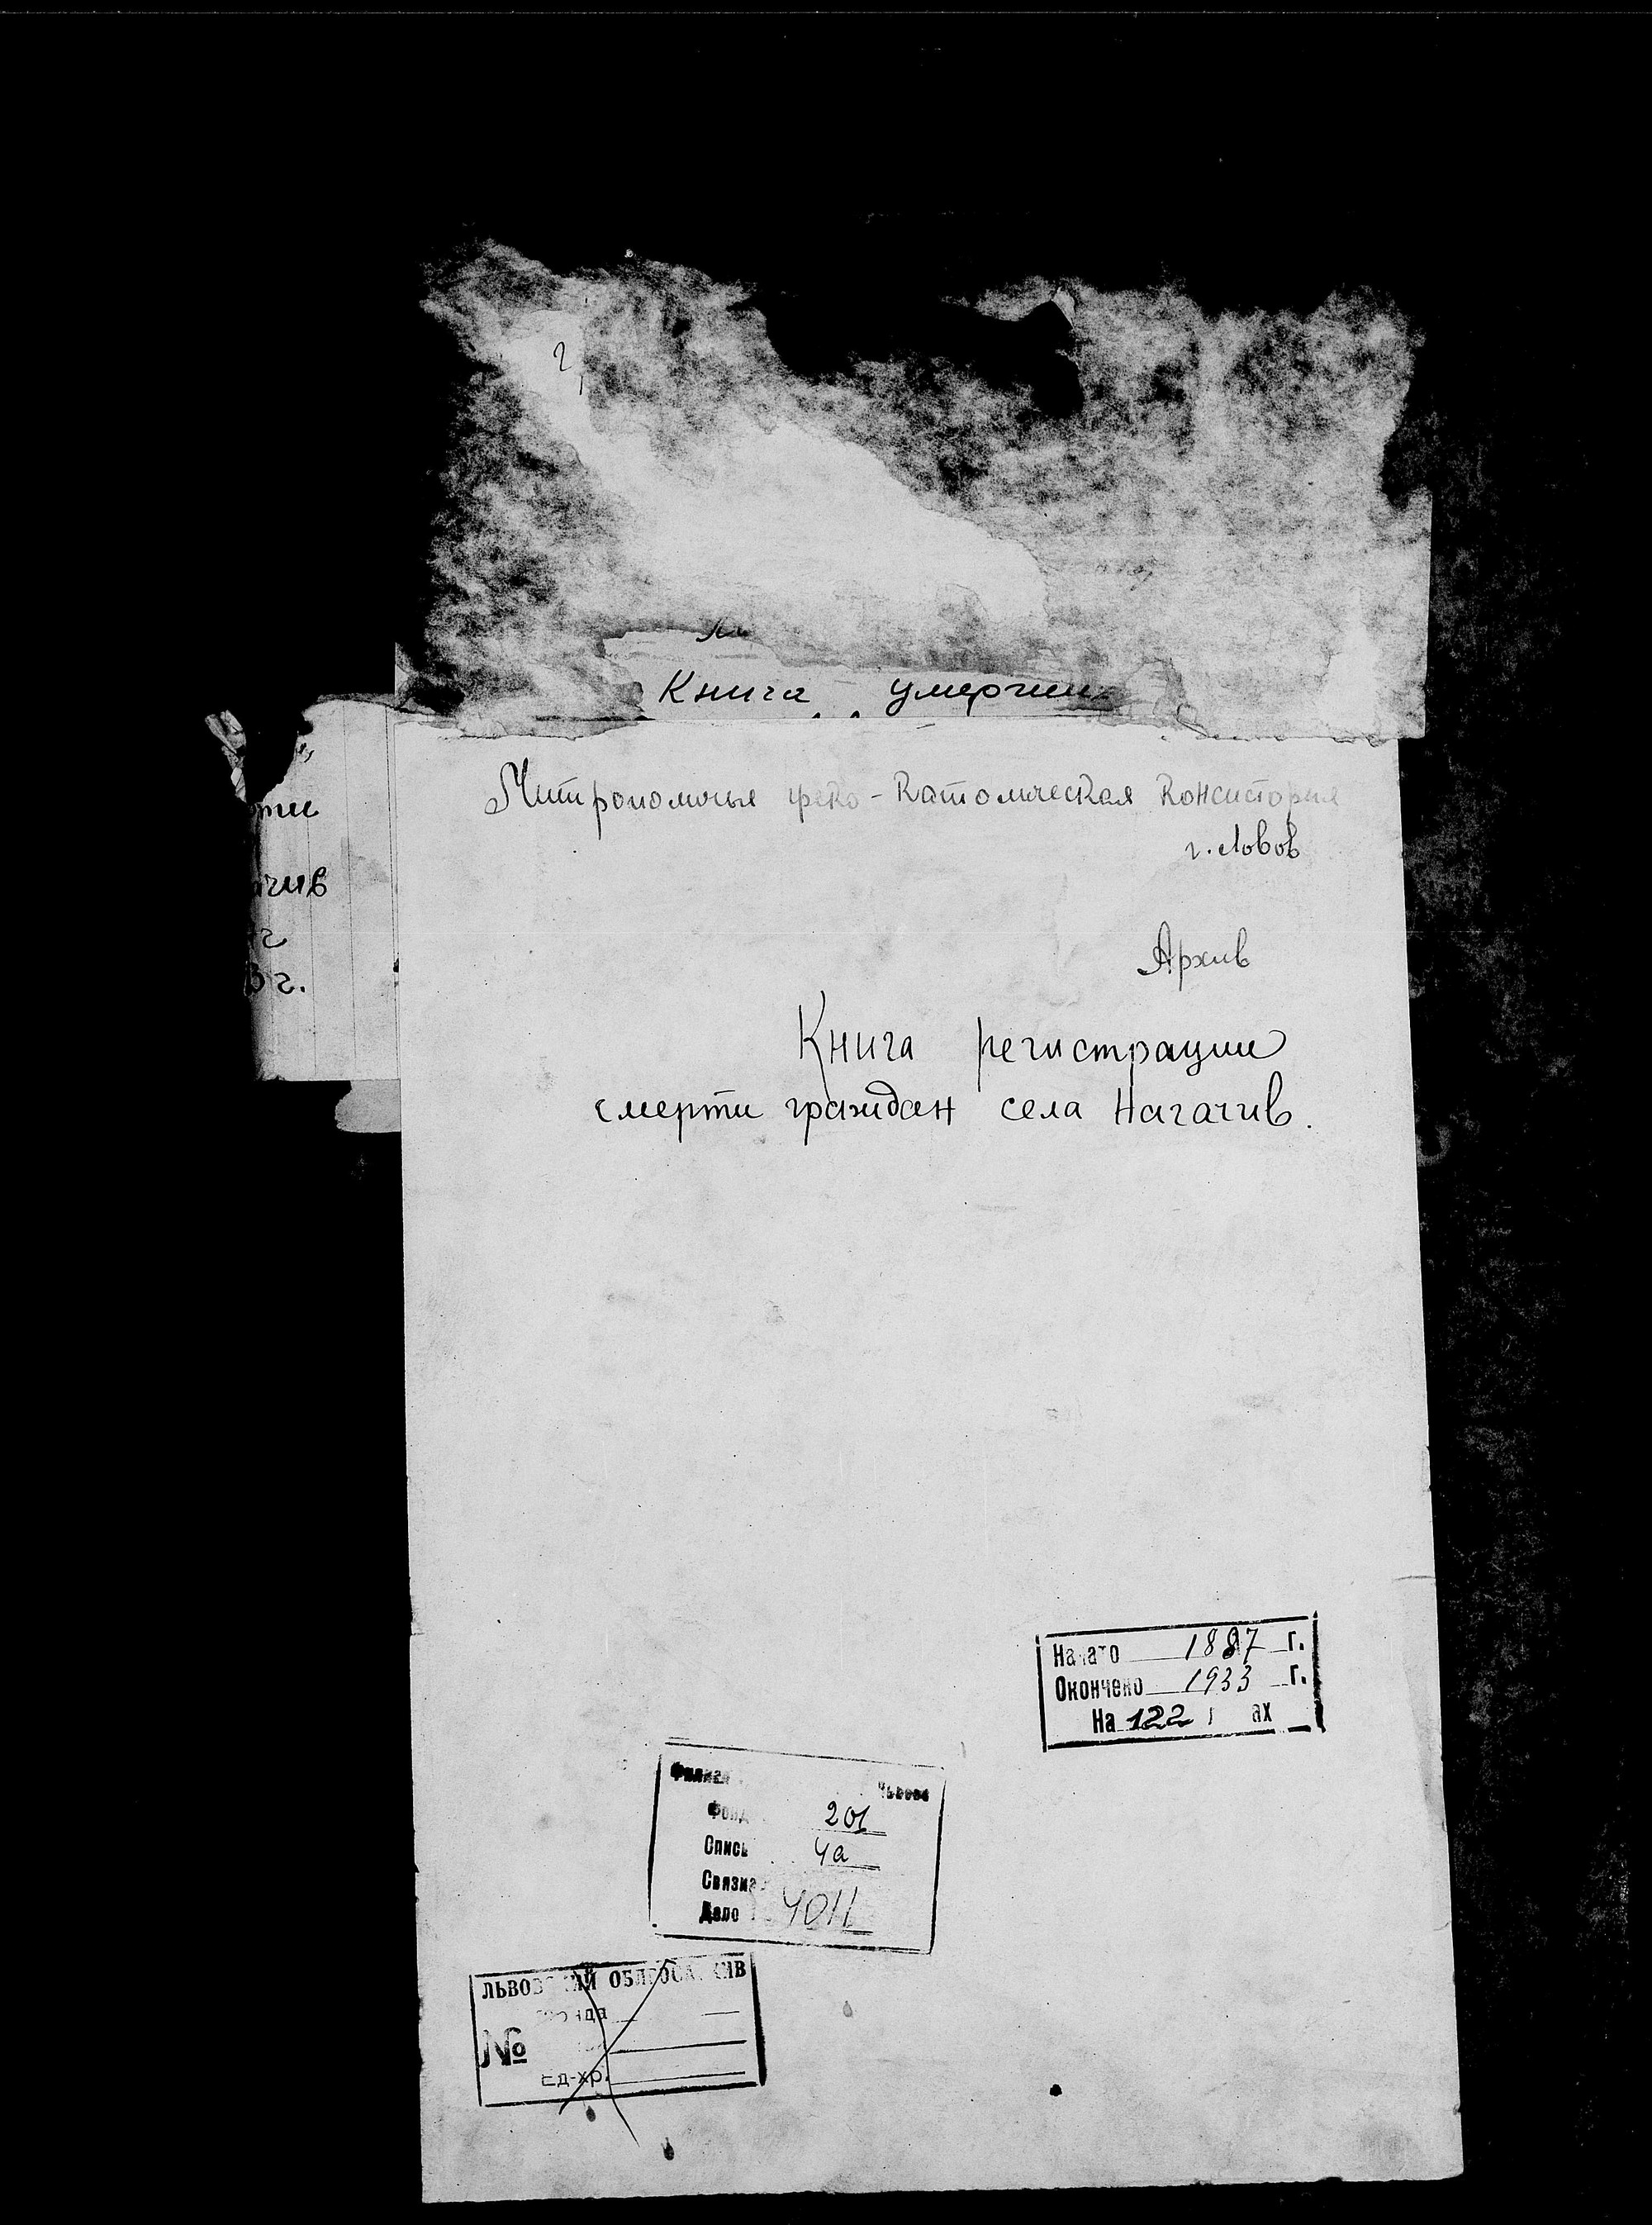 Книга умерших
Митрополичья греко-католическая консистория
г. Львов
рти
ачив
г.
3 г.
Архив
Книга регистрации
смерти граждан села Нагачив.
Начато 1887 г.
Окончено 1933 г.
На 122 ах
Филиал Львове
Фонд 201
Опись 4а
Связка
Дело 4011
ЛЬВОВСКИЙ ОБЛГОСАРХИВ
фонда
№
Ед-хр.